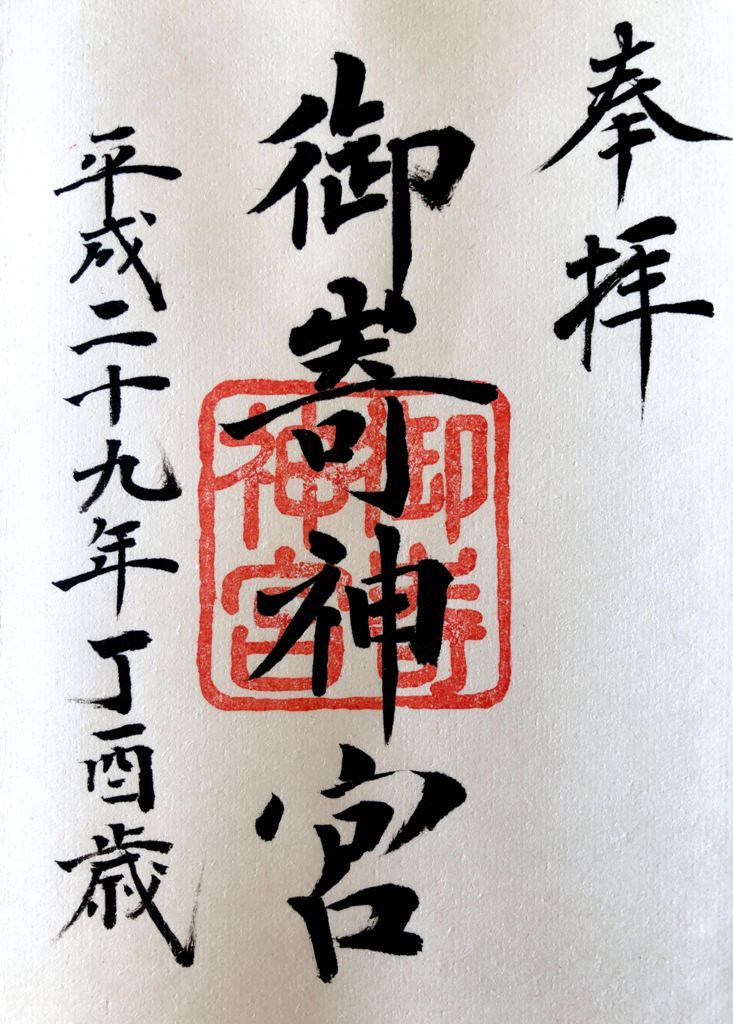 奉拝
御嵜神宮
平成二十九年丁酉歳
御嵜
神宮